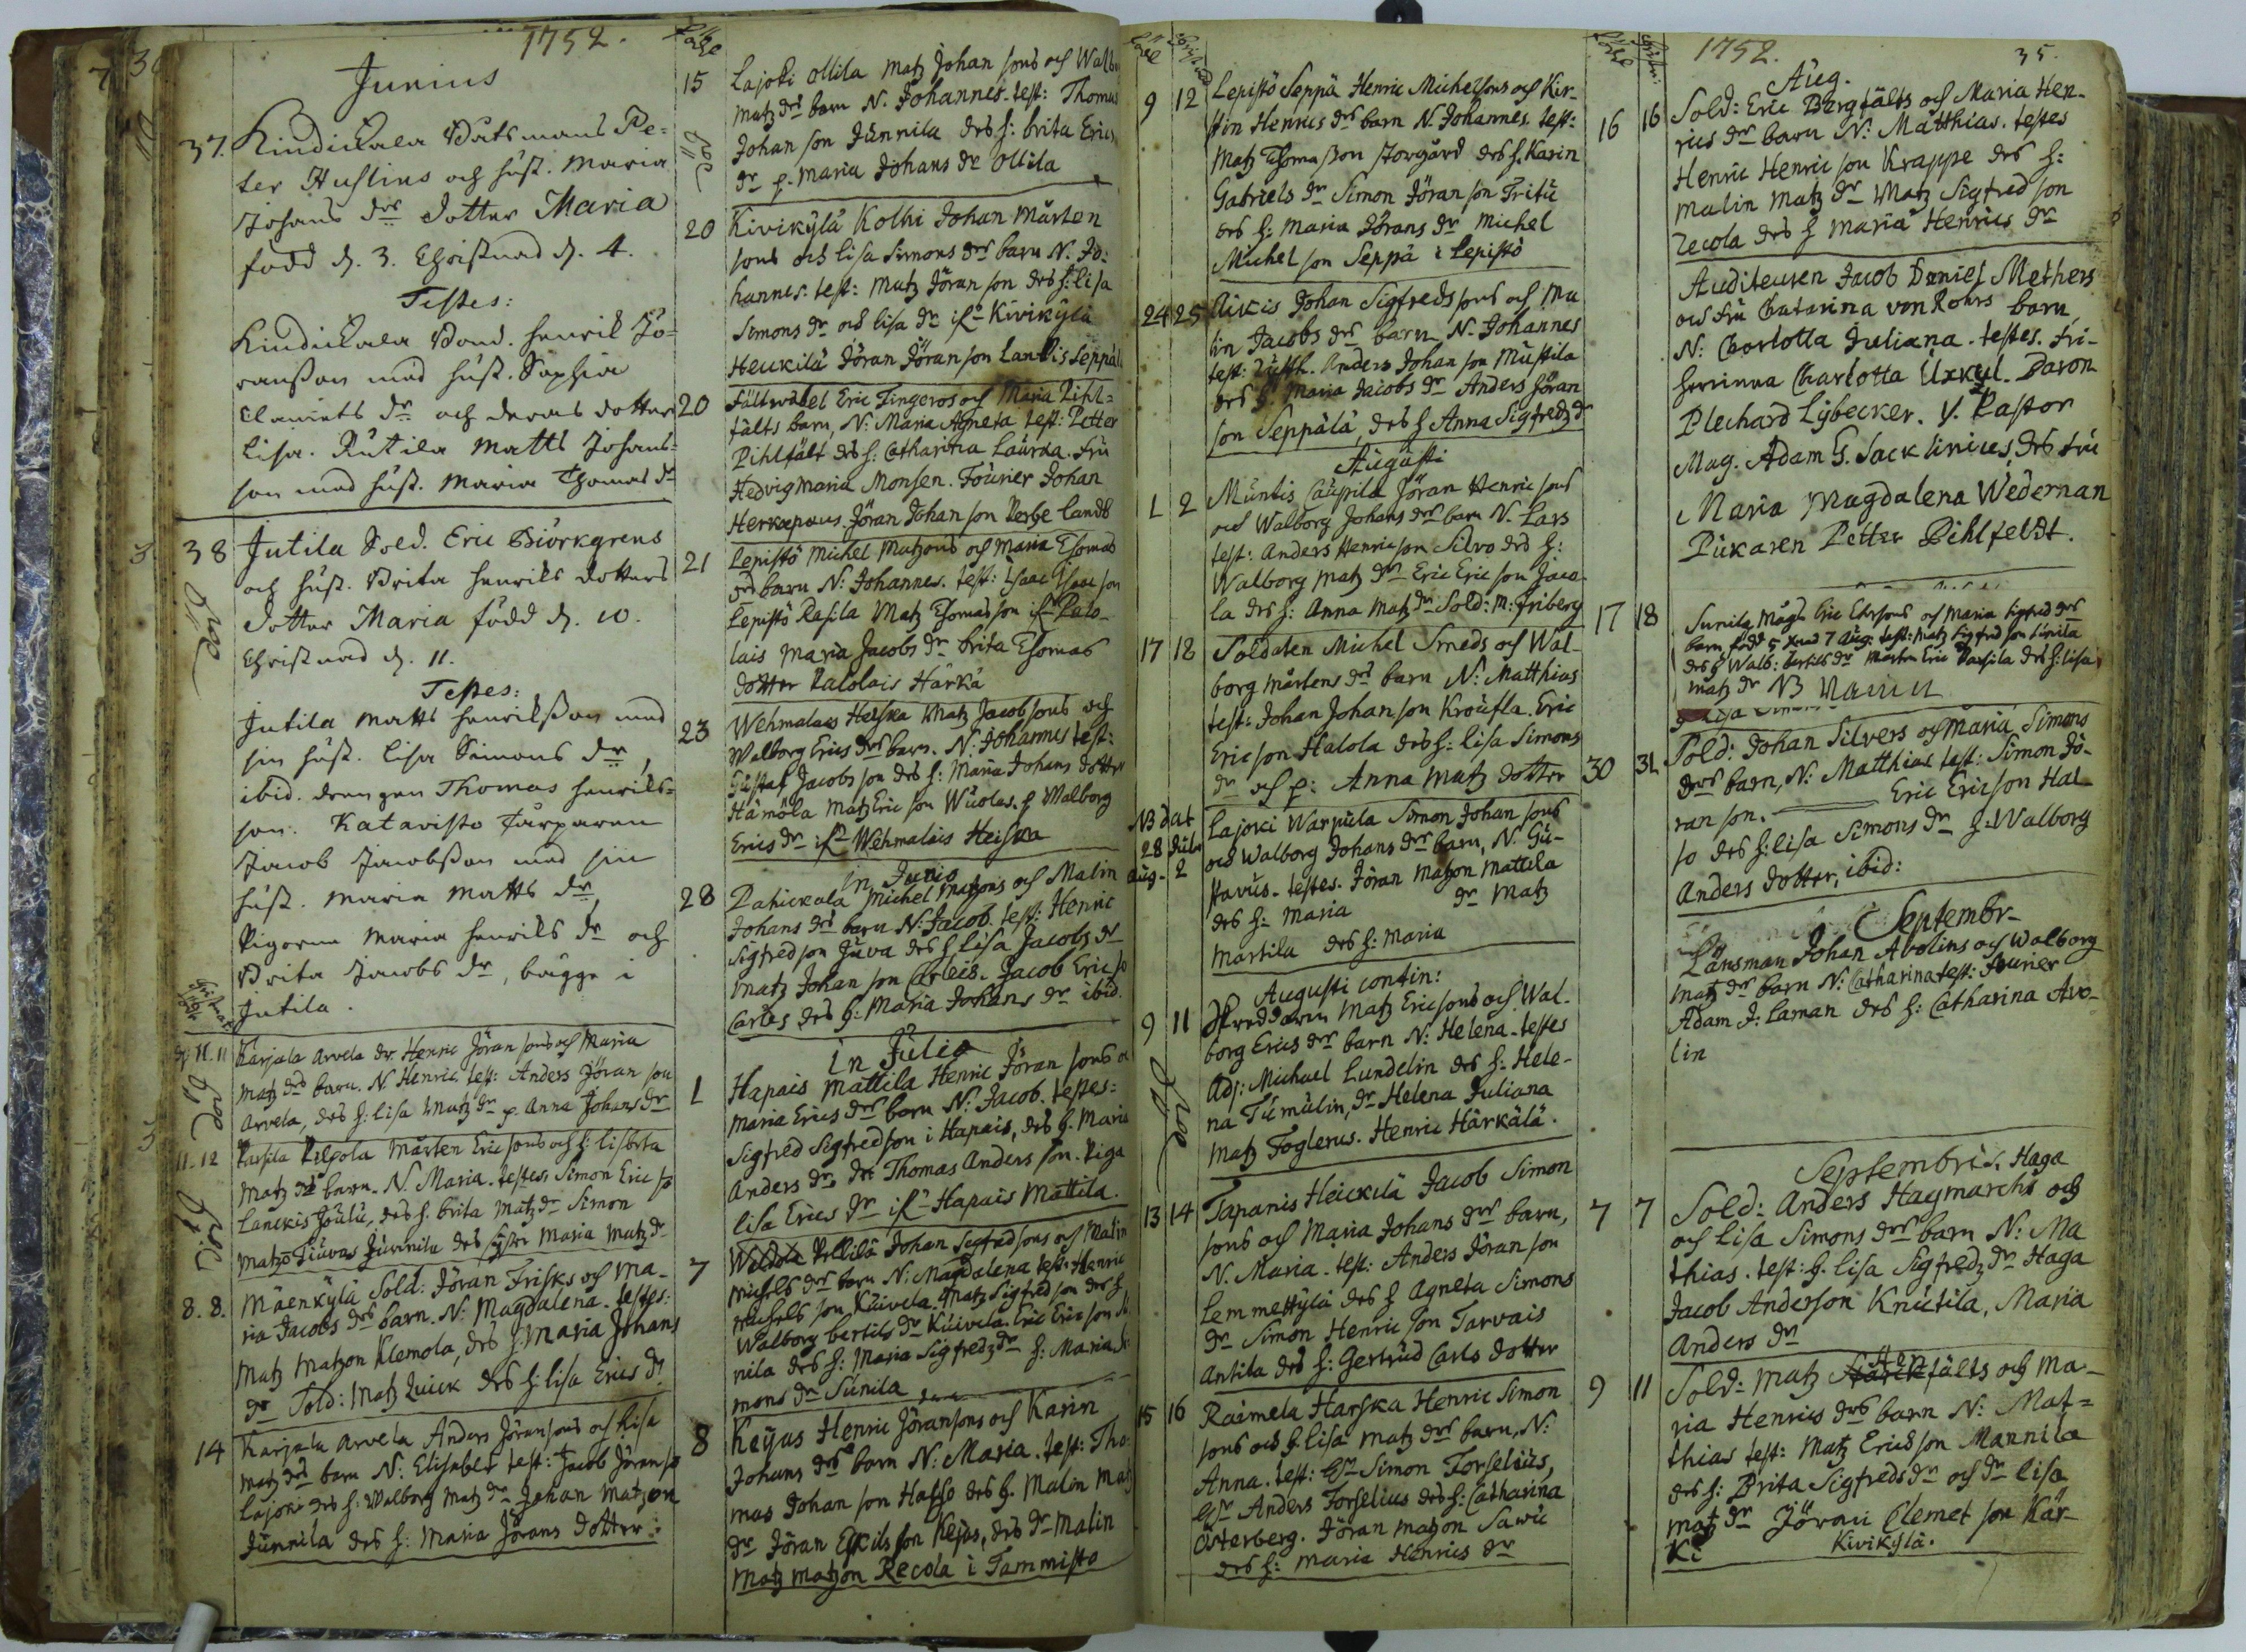 1752.
Junius
37. Kindickala Båtsmans Pe=
ter Huslins och hust. Maria
Johans drs dotter Maria
född d. 3. Christnad d. 4.
Testes:
Kindickala Bond. Henrik Jö=
ransson med hust. Sophia
Clemets dr och deras dotter
Lisa. Rutila Matts Johans=
son med hust. Maria Thomas dr
38 Jutila Sold. Eric Biörkgrens
och hust. Brita Henriks dotters
dotter Maria född d. 10.
Christnad d. 11.
Testes:
Jutila Matts Henriksson med
sin hust. Lisa Simons dr,
ibid. drengen Thomas Henriks=
son. Katavisto Torparen
Jacob Jacobsson med sin
hust. Maria Matts dr,
Pigorna Maria Henriks dr och
Brita Jacobs dr, bägge i
Jutila.
11. 11 Karjala Arvela dr Henric Jöransons och Maria
Matz drs barn. N. Henric. test: Anders Jöran son
Arvela, des h: Lisa Matz dr p. Anna Johans dr
11-12 Mårten Ericsons och h: Lisbeta
Matz drs barn. N. Maria. testes Simon Eric so
Lanckis Joulu, des h. Brita Matz dr Simon
Juvenila des syster Maria Matz dr
8. 8. Mäenkylä Sold: Jöran Frisks och Ma-
ria Jacobs drs barn. N: Magdalena. testes:
Matz Matzon Klemola, des h: Maria Johans
dr Sold: Matz Quick des h: Lisa Erics dr
14 Karjala Arvela Anders Jöransons och Lisa
Matz drs barn N: Elisabet test: Jacob Jöranso
Lajoki des h: Walborg Matz dr Johan Matzon
Junnila des h: Maria Jörans dotter.
15 Lajoki Ollila Matz Johan sons och Walb
Matz drs barn N. Johannes. test: Thomas
Johan son Junnila des h: Brita Erics
dr p. Maria Johans dr Ollila
20 Kivikylä Kolhi Johan Mårten
sons och Lisa Simons drs barn N. Jo:
hannes: test: Matz Jöran son des h: Lisa
Simons dr och Lisa dr if:n Kivikylä
Heickilä Jöran Jöran son Lanckis Seppäl
20 Fältwäbel Eric Fingeros och Maria Pihl=
fälts barn, N: Maria Agneta test: Petter
Pihlfält des h: Catharina Laurda. Fru
Hedvig Maria Monsen. Fourier Johan
Herkepaus. Jöran Johan son
21 Lepistö Michel Matzons och Maria Thomas
drs barn N: Johannes. test: Isaac Isaac son
Lepistö Rasila Matz Thomas son if:n Palo-
lais Maria Jacobs dr Brita Thomas
dotter Palolais Härkä
23 Wehmalais Heiska Matz Jacob sons och
Walborg Erics drs barn. N: Johannes test:
Gustaf Jacobs son des h: Maria Johans dotter
Hämölä Matz Eric son Wuolas. h Walborg
Erics dr if:n Wehmalais Heiska
in Junio
28 Pahickala Michel Matzons och Malin
Johans drs barn N: Jacob. test: Henric
Sigfred son Juva des h Lisa Jacobs dr
Matz Johan son Carleis. Jacob Eric so
Carles des h: Maria Johans dr ibid.
in Julio
1 Hapais Mattila Henric Jöran sons o
Maria Erics drs barn N: Jacob. testes:
Sigfred Sigfredson i Hapais, des h. Maria
Anders dr, Thomas Anders son. Piga
Lisa Erics dr if:n Hapais Mattila.
7 Pellilä Johan Sigfredsons och Malin
Michels drs barn N: Magdalena test: Henric
Michels son Kuivela. Matz Sigfred son des h
Walborg Bertils dr Kuivela. Eric Eric son S
nila des h: Maria Sigfredz dr h: Maria
mons dr Sunila
8 Keijus Henric Jöransons och Karin
Johans drs barn N: Maria. test: Tho
mas Johan son Hasso des h. Malin Matz
dr Jöran Eskils son Kejus, des dr Malin
Matz Matzon Recola i Tammisto
9 12 Lepistö Seppä Henric Michelsons och Kir-
stin Henrics drs barn N. Johannes. test:
Matz Thoma Son Storgård des h. Karin
Gabriels dr Simon Jöran son Fritu
des h: Maria Jörans dr Michel
Michel son Seppä i Lepistö
24 25 Aikis Johan Sigfreds sons och Ma
lin Jacobs drs barn N. Johannes
test: Anders Johan son Mustila
des h: Maria Jacobs dr Anders Jöran
son Seppälä, des h Anna Sigfredz dr
Augusti
1 2 Muntis Caupila Jöran Henric sons
och Walborg Johans drs barn N. Lars
test: Anders Henric son Silvo des h:
Walborg Matz dr Eric Eric son Jaco-
la des h: Anna Matz dr Sold: M: Friberg
17 18 Soldaten Michel Smeds och Wal-
borg Mårtens drs barn N: Matthias
test: Johan Johan son Kroufla. Eric
Ericson Halola des h: Lisa Simons
dr och p: Anna Matz dotter
NB dat
28 Juli
Aug. 2 Lajoki Warpula Simon Johan sons
och Walborg Johans drs barn, N. Gu-
stavus. testes. Jöran Matzon Mattila
des h: Maria dr Matz
Martila des h: Maria
Augusti contin:
9 11 Matz Ericsons och Wal-
borg Erics drs barn N: Helena. testes
Adj: Michael Lundelin des h: Hele-
na Tumulin, dr Helena Juliana
Matz Foglerus. Henric Härkälä.
13 14 Tapanis Heickilä Jacob Simon
sons och Maria Johans drs barn,
N. Maria. test: Anders Jöran son
Lemmettylä des h Agneta Simons
dr Simon Henric son Tarvais
Antila des h: Gertrud Carls dotter
15 16 Raimela Harska Henric Simon
sons och h. Lisa Matz drs barn, N:
Anna. test: Simon Forselius,
Anders Forselius des h: Catharina
Österberg. Jöran Matzon Sawu
des h: Maria Henrics dr
1752. 35.
Aug.
16 16 Sold: Eric Bergfälts och Maria Hen-
rics drs barn N: Matthias. testes
Henric Henric son Krappe des h:
Malin Matz dr Matz Sigfred son
Zecola des h Maria Henrics dr
Auditeuren Jacob Daniel Methers
och Fru Catarina von Kohrs barn,
N: Charlotta Juliana. testes. Fri-
herrinna Charlotta Üxkyl. Baron
Plechard Lybecker. V. Pastor
Mag. Adam G. Sacklinius, des Fru
Maria Magdalena Wederman
Pukaren Petter Pihlfeldt.
17 18 Sunila Mågs Eric Ersons och Maria Sigfrids drs
barn född 5 xnad 7 Aug. test: Matz Sigfred son Sunila
des h Walb: Bertils dr Mårten Eric Parsila des h: Lisa
Matz dr NB
30 31 Sold: Johan Silvers och Maria Simons
drs barn, N: Matthias test: Simon Jö-
ran son. Eric Ericson Hal-
so des h: Lisa Simons dr h: Walborg
Anders dotter, ibid:
Septembr-
Länsman Johan Avolins och Walborg
Matz drs barn N: Catharina test: Fourier
Adam J: Laman des h: Catharina Avo-
lin
Septembris. Haga
7 7 Sold: Anders Hagmarchs och
och Lisa Simons drs barn N: Ma
thias. test: h. Lisa Sigfredz dr Haga
Jacob Anderson Knutila, Maria
Anders dr
9 11 Sold: Matz fälts och Ma-
ria Henrics drs barn N: Mat=
thias test: Matz Ericsson Mannila
des h: Brita Sigfreds dr och dr Lisa
Matz dr Jöran Clemet son Kär-
ki Kivikylä.